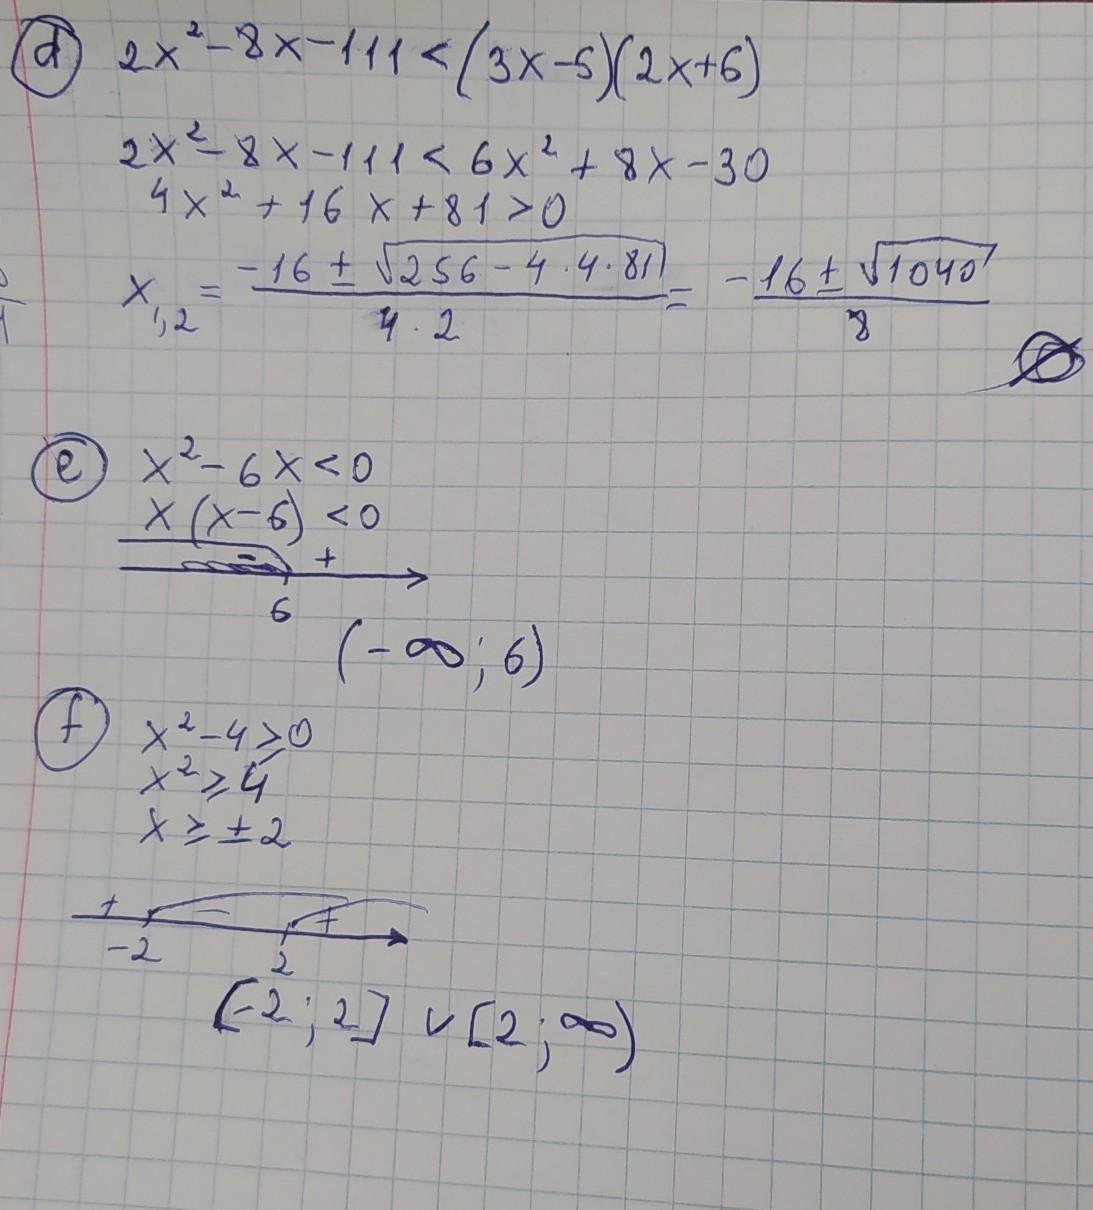 d) 2x² - 8x - 111 < (3x-5)(2x+6)
2x² - 8x - 111 < 6x² + 8x - 30
4x² + 16x + 81 > 0
x₁,₂ = (-16 ± √(256 - 4·4·81))/(4·2) = (-16 ± √1040)/8
∅
e) x² - 6x < 0
x(x-6) < 0
- +
6
(-∞; 6)
f) x² - 4 ≥ 0
x² ≥ 4
x ≥ ±2
+ - +
-2 2
[-2; 2] ∨ [2; ∞)